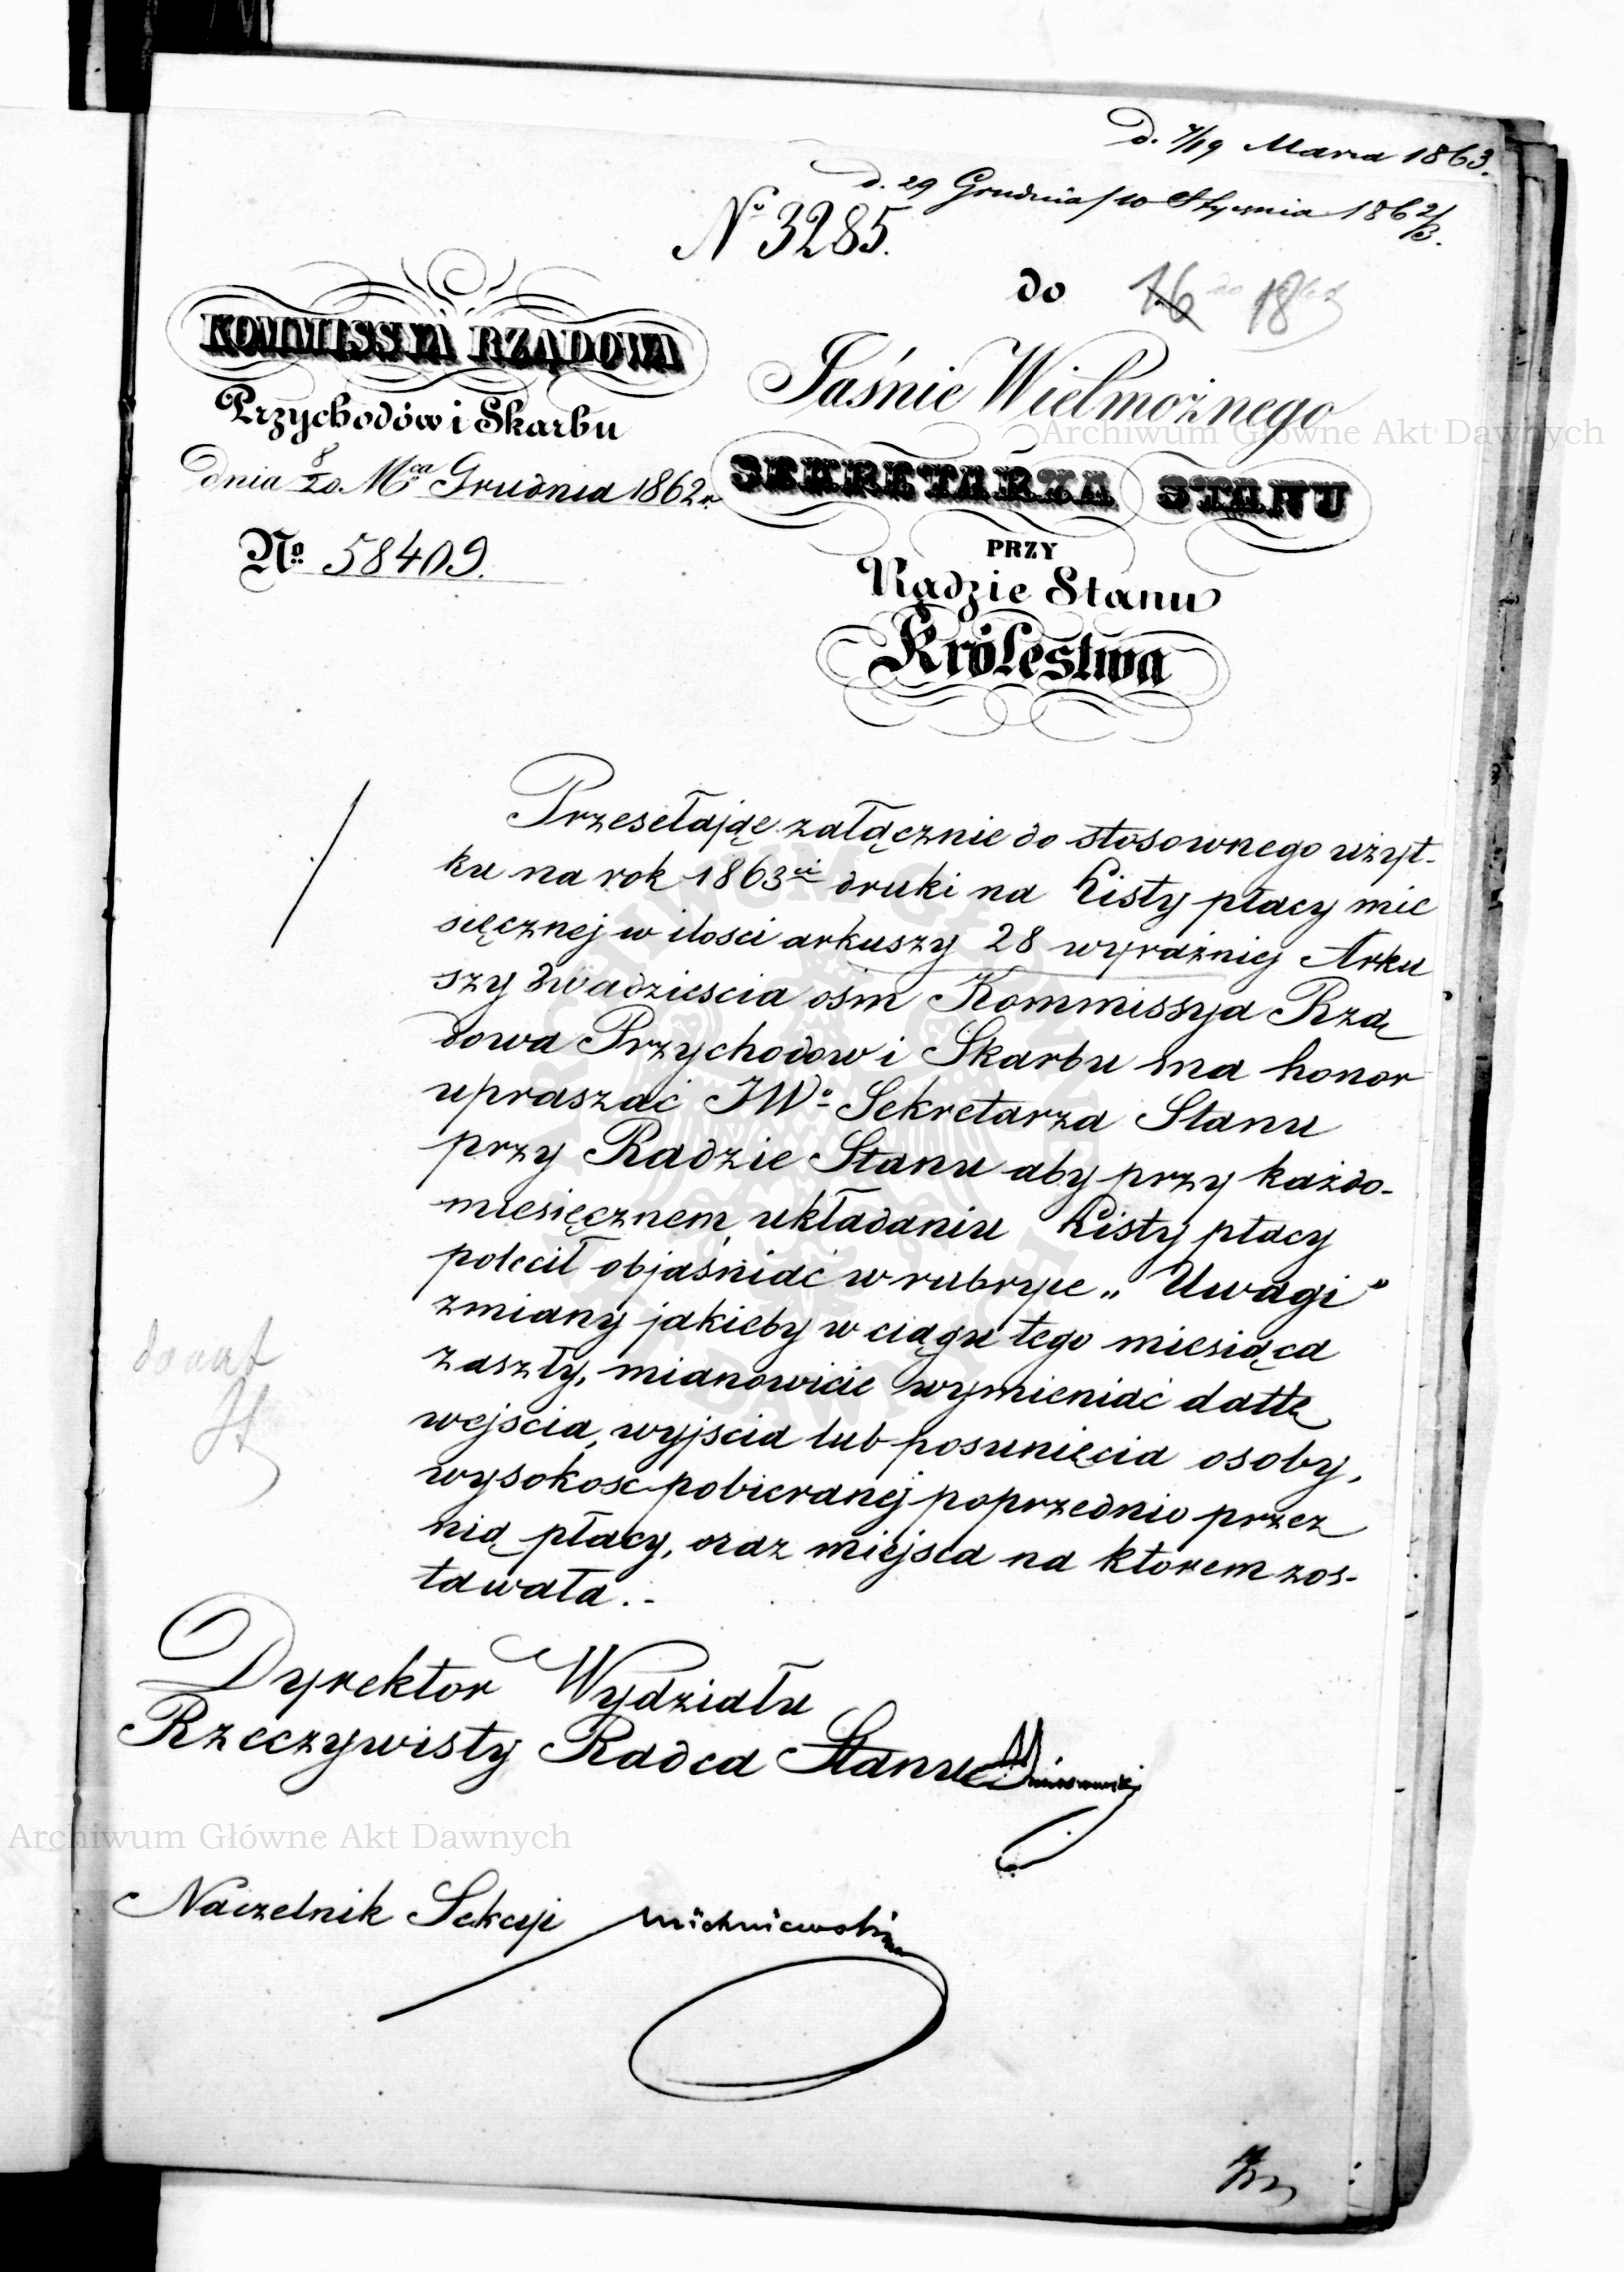 D. 7/19 Marca 1863.
d. 29 Grudnia/10 Stycznia 1862/3.
No 3285.
do 16 18
KOMMISSYA RZĄDOWA
Przychodów i Skarbu
dnia 8/20 Mca Grudnia 1862 r.
No 58409.
Jaśnie Wielmożnego
SEKRETARZA STANU
PRZY
Radzie Stanu
Królestwa
Przesełając załącznie do stosownego użyt-
ku na rok 1863ci druki na Listy płacy mie
sięcznej w ilosci arkuszy 28 wyraźniej Arku
szy dwadziescia ośm Kommissya Rzą
dowa Przychodow i Skarbu ma honor
upraszać JWo Sekretarza Stanu
przy Radzie Stanu aby przy każdo-
miesięcznem układaniu Listy płacy
polecił objaśniać w rubryce „Uwagi”
zmiany jakieby w ciągu tego miesiąca
zaszły, mianowicie wymieniać dattę
wejścia, wyjścia lub posunięcia osoby,
wysokosc pobieranej poprzednio przez
nią płacy, oraz miejsca na ktorem zos-
tawała.-
Dyrektor Wydziału
Rzeczywisty Radca Stanu
Naczelnik Sekcyi Michniewski
Archiwum Główne Akt Dawnych
Archiwum Główne Akt Dawnych